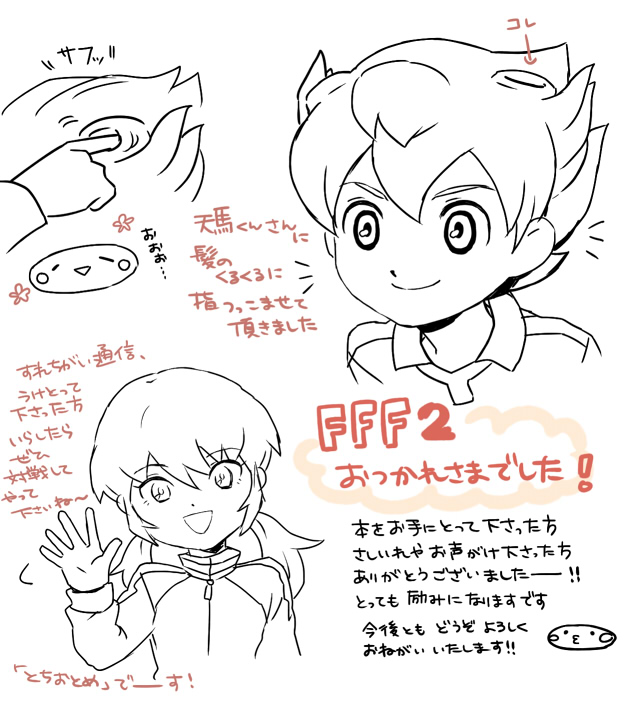 サフッ!!
コレ
おぉぉ…
天馬くんさんに
髪の
くるくるに
指つっこませて
頂きました
すれちがい通信、
うけとって
下さった方
いらしたら
ぜひ
対戦して
やって
下さいね〜
FFF2
おつかれさまでした!
本をお手にとって下さった方
さしいれやお声がけ下さった方
ありがとうございましたーー!!
とっても励みになりますです
今後とも どうぞ よろしく
おねがい いたします!!
「とちおとめ」でーーす!